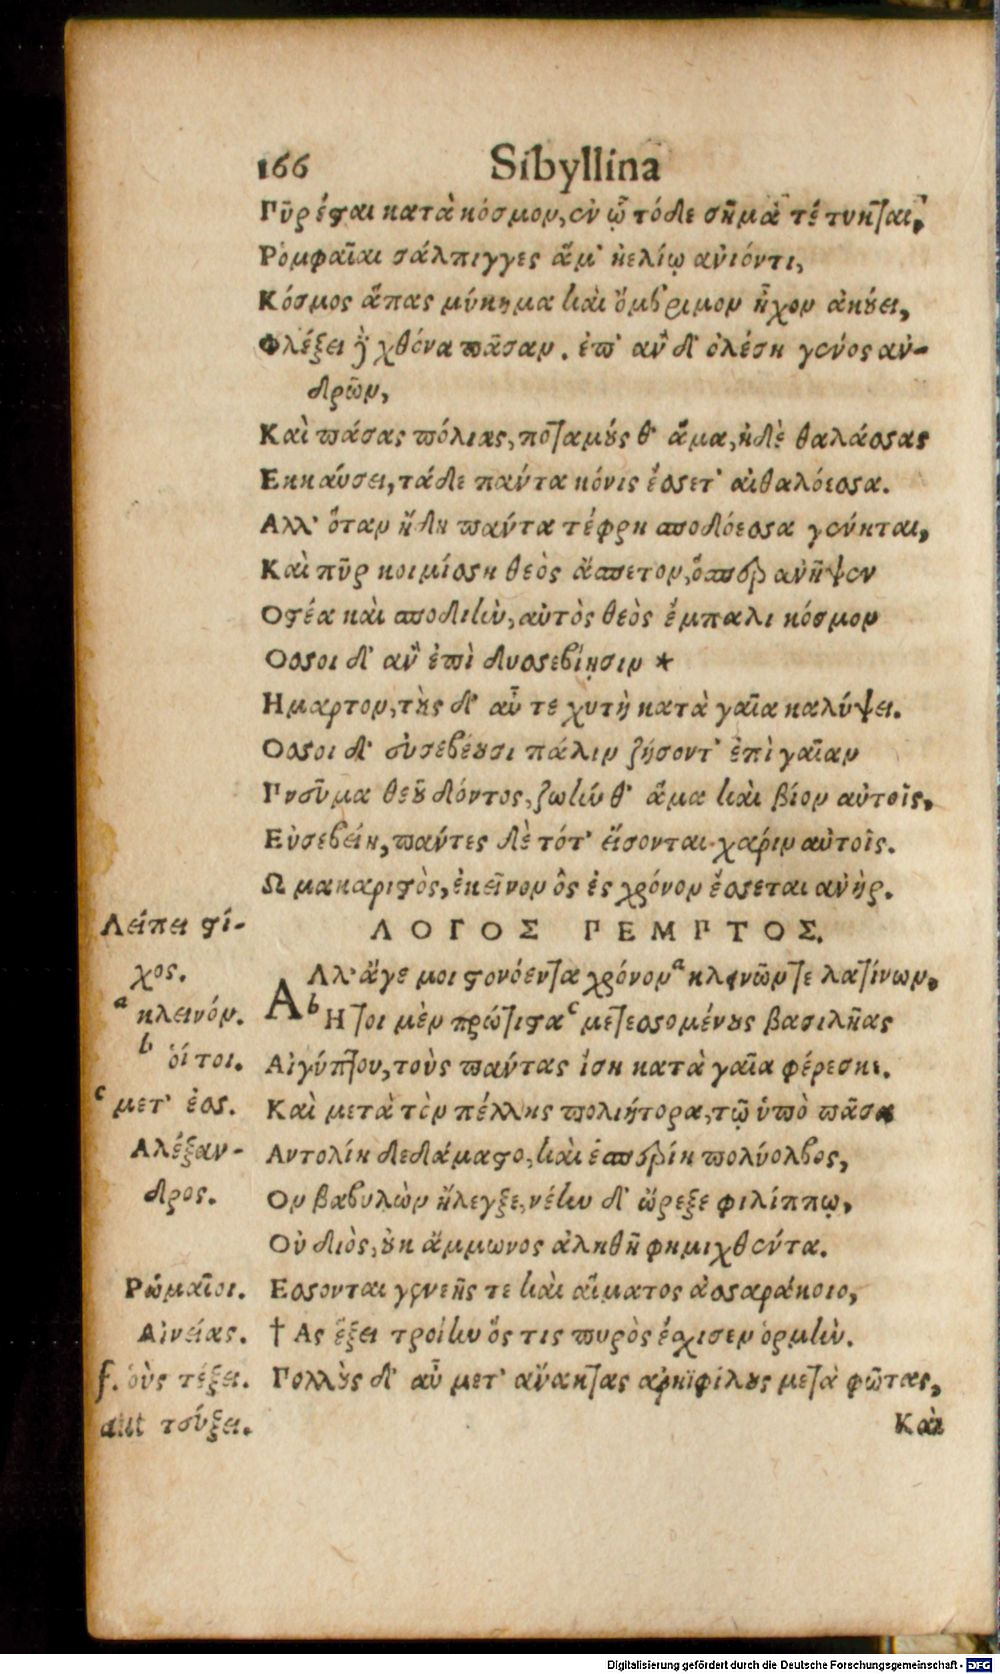 166 Sibyllina
Πῦρ ἔσται κατὰ κόσμον, ἐν ᾧ τόδε σῆμα τέτυκται,
Ρομφαῖαι σάλπιγγες ἅμ' ἠελίῳ ἀνιόντι,
Κόσμος ἅπας μύκημα καὶ ὄμβριμον ἦχον ἀκούει,
Φλέξει δὲ χθόνα πᾶσαν. ἐπ' ἂν δ' ὀλέση γένος ἀν-
δρῶν,
Καὶ πάσας πόλιας, ποταμούς θ' ἅμα, ἠδὲ θαλάσσας
Εκκαύσει, τάδε πάντα κόνις ἔσσετ' αἰθαλόεσσα.
Αλλ' ὅταν ἤδη πάντα τέφρη σποδόεσσα γένηται,
Καὶ πῦρ κοιμίσση θεὸς ἄσπετον, ὅσπερ ἀνῆψεν
Οστέα καὶ σποδιὴν, αὐτὸς θεὸς ἔμπαλι κόσμον
Οσσοι δ' ἂν ἐπὶ δυσσεβίῃσιν *
Ημαρτον, τοὺς δ' αὖ τε χυτὴ κατὰ γαῖα καλύψει.
Οσσοι δ' εὐσεβέουσι πάλιν ζήσοντ' ἐπὶ γαῖαν
Πνεῦμα θεοῦ δόντος, ζωήν θ' ἅμα καὶ βίον αὐτοῖς,
Εὐσεβέιη, πάντες δὲ τότ' εἴσονται χάριν αὐτοῖς.
Ω μακαριστὸς, ἐκεῖνον ὃς ἐς χρόνον ἔσσεται ἀνήρ.
ΛΟΓΟΣ ΠΕΜΠΤΟΣ.
Λείπει στί-
χος.
ᵃ κλεινόν.
ᵇ ὅι τοι.
ᶜ μετ' ἐσσ.
Αλέξαν-
δρος.
Ρωμαῖοι.
Αἰνείας.
f. οὓς τέξει.
aut τεύξει.
Αλλ' ἄγε μοι στονόεντα χρόνονᵃ κλεινῶν τε λατίνων,
ᵇ Ητοι μὲν πρώτισταᶜ μετεσσομένους βασιλῆας
Αἰγύπτου, τοὺς πάντας ἴση κατὰ γαῖα φέρεσκε.
Καὶ μετὰ τὸν πέλλης πολιήτορα, τῷ ὑπὸ πᾶσα
Αντολίη δεδάμαστο, καὶ ἑσπερίη πολύολβος,
Ον βαβυλὼν ἤλεγξε, νέκυν δ' ὤρεξε φιλίππῳ,
Οὐ διὸς, οὐκ ἄμμωνος ἀληθῆ φημιχθέντα.
Εσσονται γενεῆς τε καὶ αἵματος ἀσσαράκοιο,
† Ας ἕξει τροίην ὅς τις πυρὸς ἔσχισεν ὁρμήν.
Πολλοὺς δ' αὖ μετ' ἄνακτας ἀρηϊφίλους μετὰ φῶτας,
Καὶ
Digitalisierung gefördert durch die Deutsche Forschungsgemeinschaft - DFG